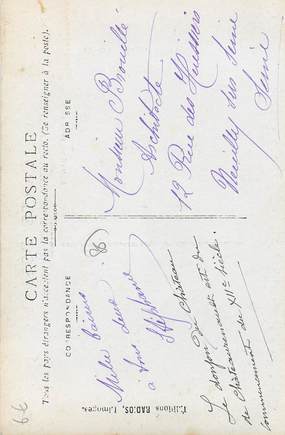 CARTE POSTALE
Tous les pays étrangers n'acceptent pas la correspondance au recto. (Se renseigner à la poste).
CORRESPONDANCE
ADRESSE
Mille baisers
à tous deux
Stéphane
Le donjon du Château
de Châteaurenault est du
commencement du XIIe siècle.
Monsieur Brouillé
Architecte
12 Rue des Huissiers
Neuilly sur Seine
Seine
Editions RADOS, Limoges.